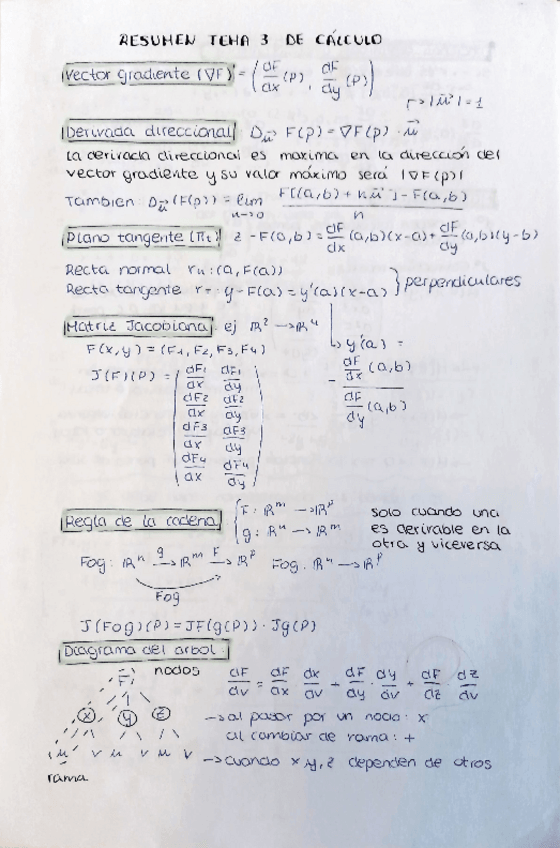 RESUMEN TEMA 3 DE CÁLCULO
Vector gradiente (∇F) = (dF/dx (P), dF/dy (P))
→ |u⃗| = 1
Derivada direccional D_u⃗ F(P) = ∇F(P) · u⃗
La derivada direccional es maxima en la dirección del
vector gradiente y su valor máximo será |∇F(P)|
Tambien: D_u⃗ (F(P)) = lim h→0 F[(a,b) + h u⃗] - F(a,b) / h
Plano tangente (Πt) z - F(a,b) = dF/dx (a,b)(x-a) + dF/dy (a,b)(y-b)
Recta normal rn: (a, F(a))
Recta tangente r=: y - F(a) = y'(a)(x-a) } perpendiculares
Matriz Jacobiana ej ℝ² → ℝ⁴
↳ y'(a) =
- dF/dx (a,b) / dF/dy (a,b)
F(x,y) = (F1, F2, F3, F4)
J(F)(P) = ( dF1/dx dF1/dy
dF2/dx dF2/dy
dF3/dx dF3/dy
dF4/dx dF4/dy )
Regla de la cadena { F: ℝᵐ → ℝᵖ
g: ℝⁿ → ℝᵐ
solo cuando una
es derivable en la
otra y viceversa
Fog: ℝⁿ g→ ℝᵐ F→ ℝᵖ Fog: ℝⁿ → ℝᵖ
Fog
J(Fog)(P) = JF(g(P)) · Jg(P)
Diagrama del arbol:
F nodos
dF/dv = dF/dx · dx/dv + dF/dy · dy/dv + dF/dz · dz/dv
x y z
u v u v u v
rama
→ al pasar por un nodo: x
al cambiar de rama: +
→ cuando x y, z dependen de otros